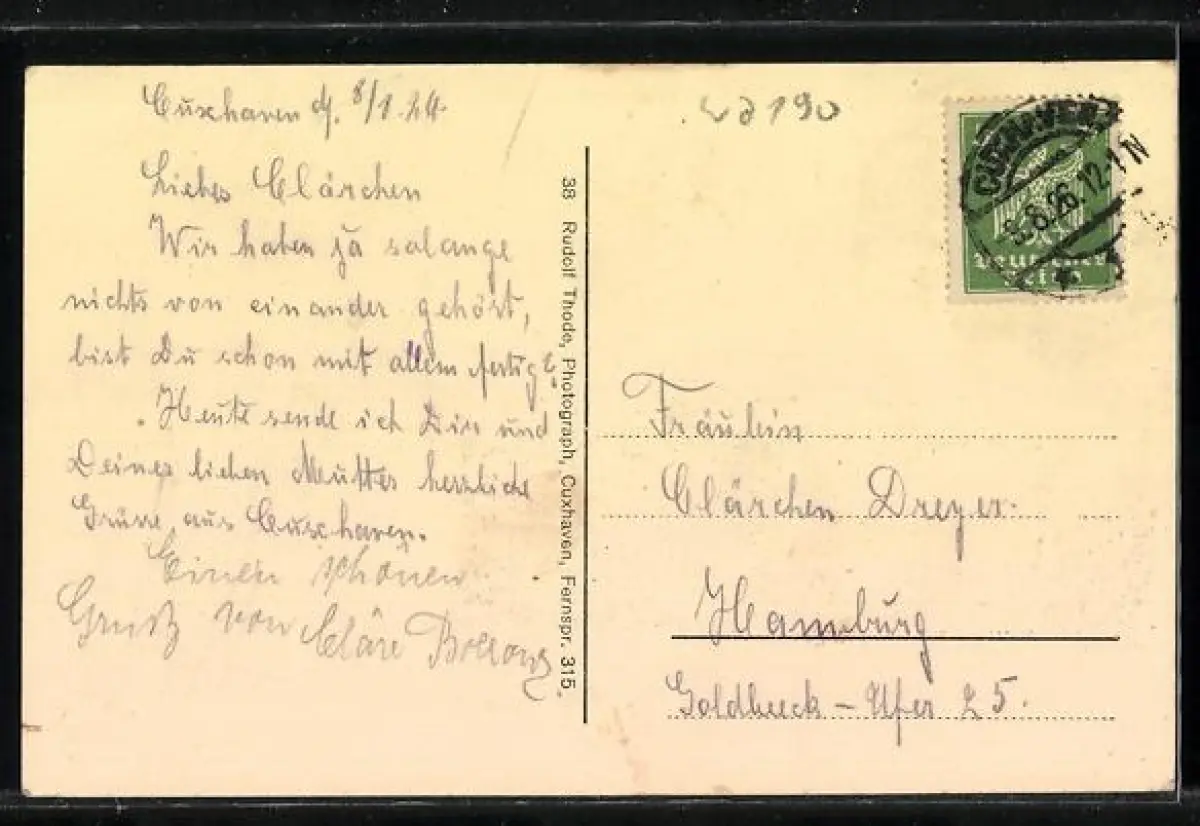 Cuxhaven d. 8/1.24.
Liebes Clärchen
Wir haben ja solange
nichts von einander gehört,
bist Du schon mit allem fertig?
Heute sende ich Dir und
Deiner lieben Mutter herzliche
Grüsse aus Cuxhaven.
Einen schönen
Gruß von Cläre
38 Rudolf Thode, Photograph, Cuxhaven, Fernspr. 315
190
CUXHAVEN
8.26.12-1N
Deutsches
Reich
Fräulein
Clärchen Dreyer.
Hamburg
Goldbeck-Ufer 25.